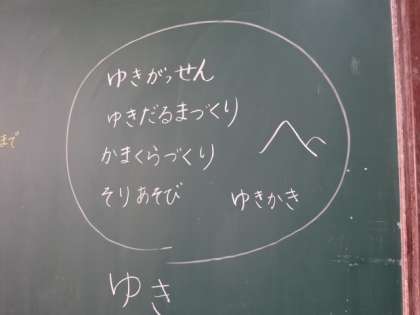 ゆきがっせん
ゆきだるまづくり
かまくらづくり
そりあそび
ゆきかき
まで
ゆき